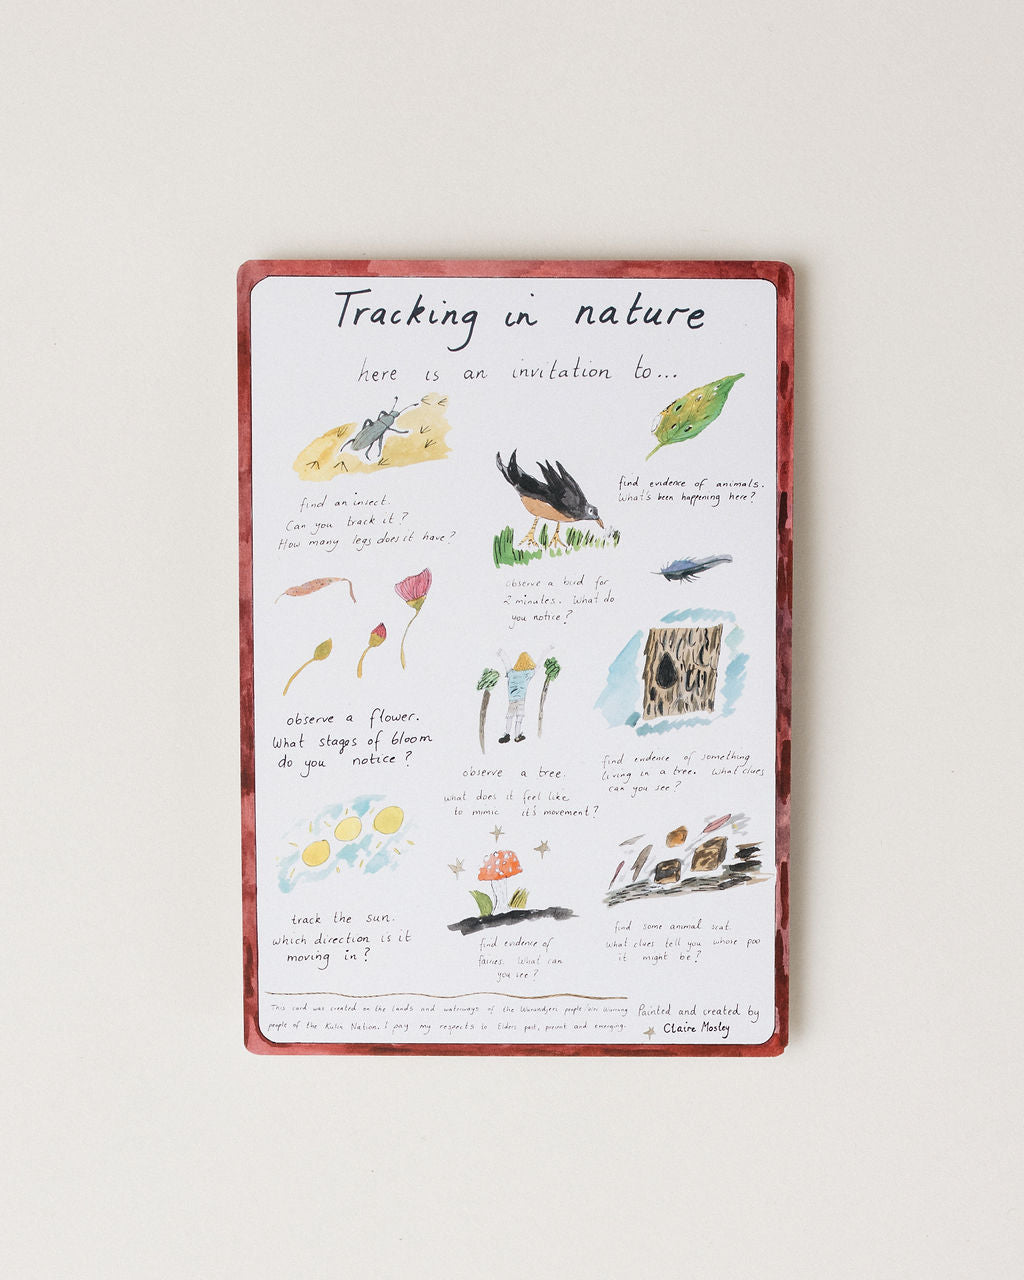 Tracking in nature
here is an invitation to...
find an insect.
Can you track it?
How many legs does it have?
observe a bird for
2 minutes. What do
you notice?
find evidence of animals.
What's been happening here?
observe a flower.
What stages of bloom
do you notice?
observe a tree.
what does it feel like
to mimic it's movement?
find evidence of something
living in a tree. What clues
can you see?
track the sun.
which direction is it
moving in?
find evidence of
fairies. What can
you see?
find some animal scat.
What clues tell you whose poo
it might be?
This card was created on the lands and waterways of the Wurundjeri people Woi Wurrung
people of the Kulin Nation. I pay my respects to Elders past, present and emerging.
Painted and created by
Claire Mosley